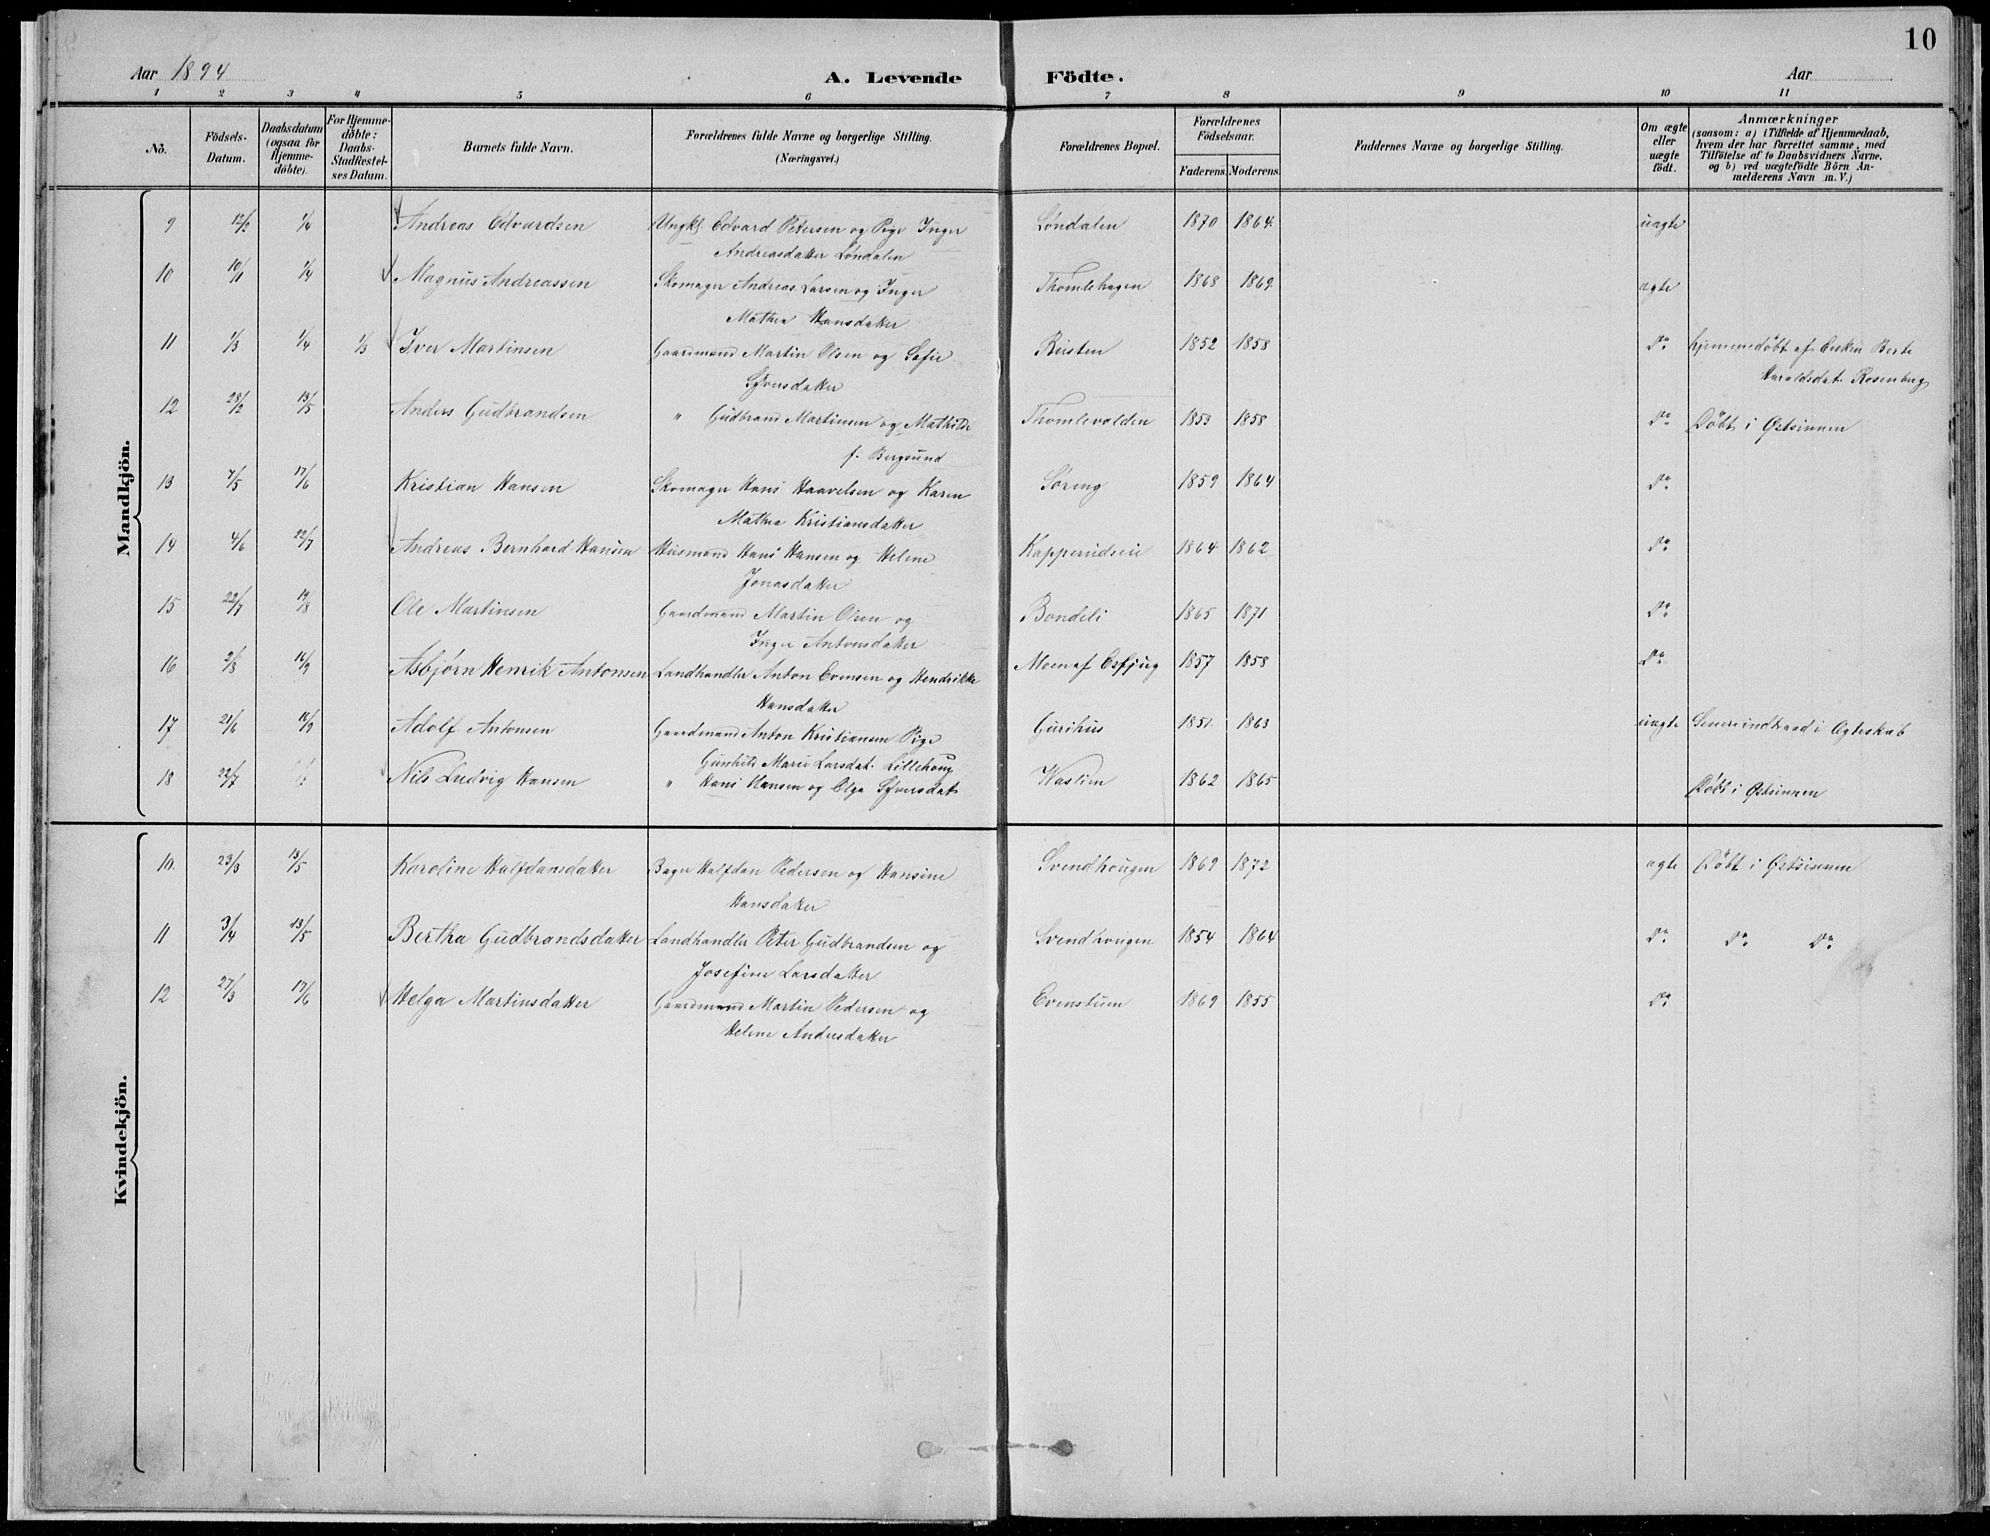 10
Aar 1894 A. Levende Födte. Aar
1 2 3 4 5 6 7 8 9 10 11
No. Födsels-Datum. Daabsdatum (ogsaa for Hjemme-döbte). For Hjemme-döbte: Daabs-Stadfæstel-ses Datum. Barnets fulde Navn. Forældrenes fulde Navne og borgerlige Stilling. (Næringsvei.) Forældrenes Bopæl. Forældrenes Födselsaar. Faderens. Moderens. Faddernes Navne og borgerlige Stilling. Om ægte eller uægte födt. Anmærkninger (saasom: a) i Tilfælde af Hjemmedaab, hvem der har forrettet samme, med Tilföielse af to Daabsvidners Navne, og b) ved uægtefödte Börn An-melderens Navn m. V.)
Mandkjön.
9 12/2 1/4 Andreas Edvardsen Ungkl. Edvard Petersen og Pige Inger Løndalen 1870 1864. uægte
Andreasdatter Løndalen
10 10/11 1/4 Magnus Andreassen Skomager Andreas Larsen og Inger Thomlehagen 1868 1869 ægte
Mathea Hansdatter
11 1/3 1/4 1/3 Iver Martinsen Gaardmand Martin Olsen og Sofie 1852 1858 Do hjemmedöbt af Enken Berte
Syversdatter Haraldsdat. Rosenberg
12 28/2 13/5 Anders Gudbrandsen " Gudbrand Martinsen og Mathilde Thomlevolden 1853 1858 Do Döbt i Østsinnen
f. Bergsund
13 7/5 17/6 Kristian Hansen Skomager Hans Haavelsen og Karen Søreng 1859 1864 Do
Mathea Kristiansdatter
14 4/6 22/7 Andreas Bernhard Hansen Husmand Hans Hansen og Helene Kapperudeie 1864 1862 Do
Jonasdatter
15 22/7 19/8 Ole Martinsen Gaardmand Martin Olsen og Bondeli 1865 1871 Do
Inger Antonsdatter
16 2/8 16/9 Asbjørn Henrik Antonsen Landhandler Anton Evensen og Hendrikke Moen af 1857 1858 Do
Hansdatter
17 21/6 16/9 Adolf Antonsen Gaardmand Anton Kristiansen Pige Gurihus 1851 1863 uægte Senere indtraad i Ægteskab
Gunhild Marie Larsdat. Lillehaug
18 22/7 Nils Ludvig Hansen " Hans Hansen og Olga Syversdat Waslien 1862 1865 Döbt i Østsinnen
Kvindekjön.
10. 23/3 13/5 Karoline Halfdansdatter Bager Halfdan Pedersen og Hansine Svendhougen 1869 1872 ægte Döbt i Østsinnen
Hansdatter
11 3/4 13/5 Bertha Gudbrandsdatter Landhandler Peter Gudbrandsen og Svendhougen 1854 1864 Do Do Do
Josefine Larsdatter
12 27/3 17/6 Helga Martinsdatter Gaardmand Martin Pedersen og Evenstuen 1869 1855 Do
Helene Andersdatter